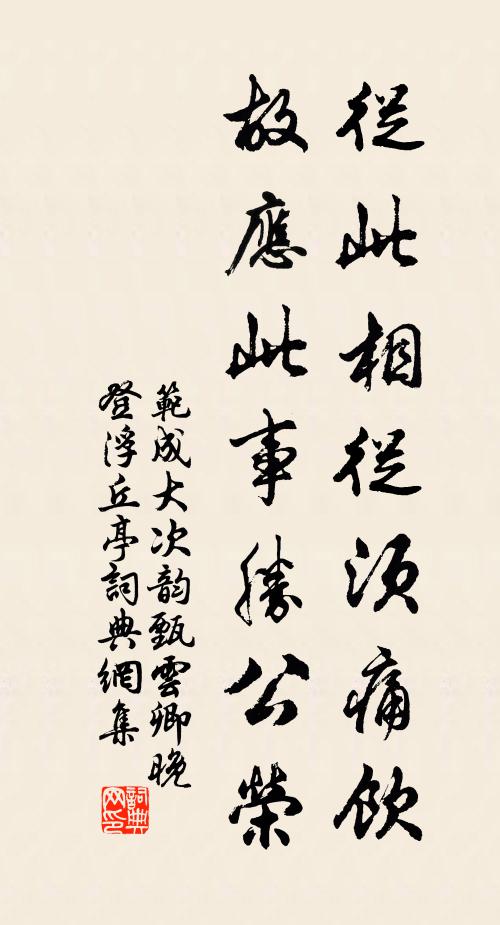 從此相從須痛飲
故應此事勝公榮
範成大次韵甄雲卿晚
登浮丘亭詞典網集
詞典
网印